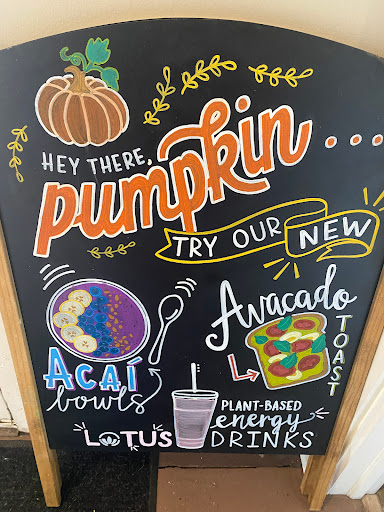 HEY THERE,
pumpkin...
TRY OUR NEW
Avacado
TOAST
AÇAÍ
bowls
LOTUS
PLANT-BASED
energy
DRINKS